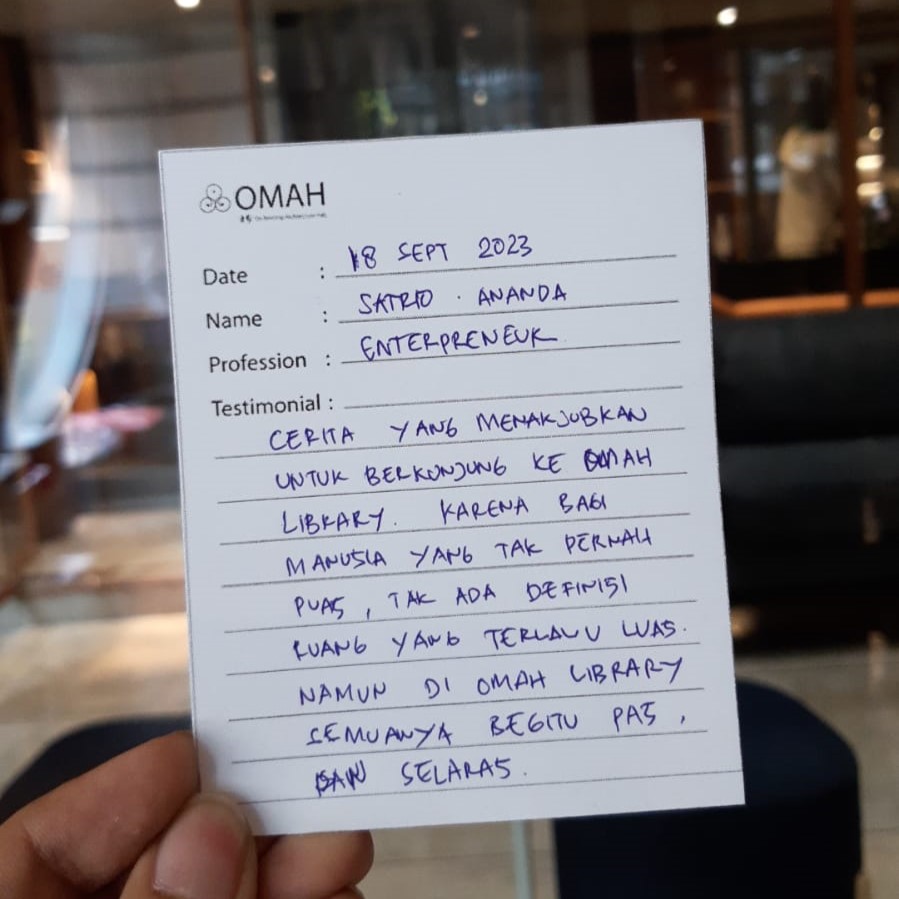 OMAH
Date : 18 SEPT 2023
Name : SATRIO . ANANDA
Profession : ENTERPRENEUR
Testimonial :
CERITA YANG MENAKJUBKAN
UNTUK BERKUNJUNG KE OMAH
LIBRARY. KARENA BAGI
MANUSIA YANG TAK PERNAH
PUAS, TAK ADA DEFINISI
RUANG YANG TERLALU LUAS.
NAMUN DI OMAH LIBRARY
SEMUANYA BEGITU PAS,
DAN SELARAS.